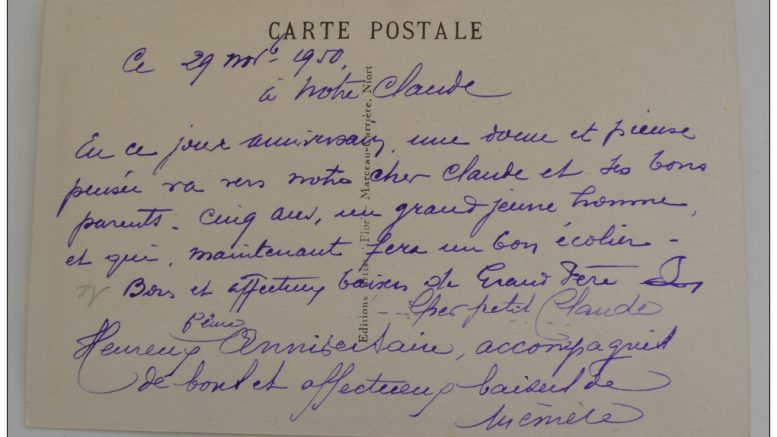 CARTE POSTALE
Ce 29 nov^b 1950.
à notre Claude
En ce jour anniversaire, une douce et pieuse
pensée va vers notre cher Claude et ses bons
parents. Cinq ans, un grand jeune homme,
et qui, maintenant sera un bon écolier -
Bons et affectueux baisers de Grand Père
Cher petit Claude
5ème
Heureux Anniversaire, accompagné
de bons et affectueux baisers de
Mémère
Editions Artist. Flor - Marceau-Carrière, Niort